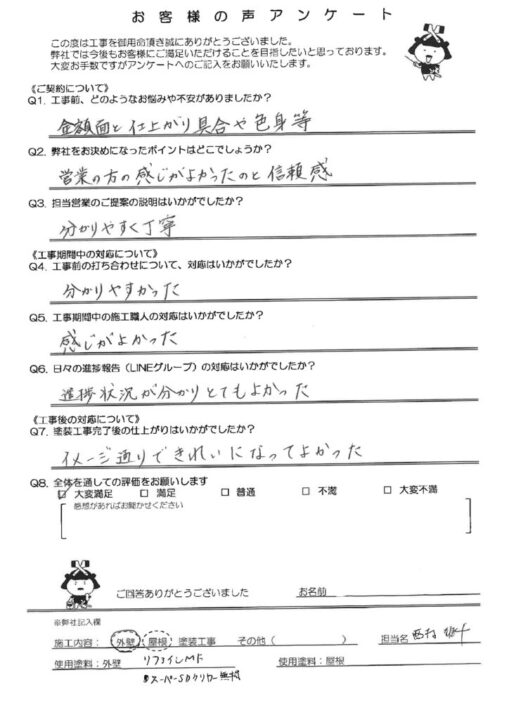 お客様の声アンケート
この度は工事を御用命頂き誠にありがとうございました。
弊社では今後もお客様にご満足いただけることを目指したいと思っております。
大変お手数ですがアンケートへのご記入をお願いいたします。
《ご契約について》
Q1. 工事前、どのようなお悩みや不安がありましたか？
金額面と仕上がり具合や色身等
Q2. 弊社をお決めになったポイントはどこでしょうか？
営業の方の感じがよかったのと信頼感
Q3. 担当営業のご提案の説明はいかがでしたか？
分かりやすく丁寧
《工事期間中の対応について》
Q4. 工事前の打ち合わせについて、対応はいかがでしたか？
分かりやすかった
Q5. 工事期間中の施工職人の対応はいかがでしたか？
感じがよかった
Q6. 日々の進捗報告（LINEグループ）の対応はいかがでしたか？
進捗状況が分かりとてもよかった
《工事後の対応について》
Q7. 塗装工事完了後の仕上がりはいかがでしたか？
イメージ通りできれいになってよかった
Q8. 全体を通しての評価をお願いします
☑ 大変満足 □ 満足 □ 普通 □ 不満 □ 大変不満
感想があればお聞かせください
ご回答ありがとうございました お名前
※弊社記入欄
施工内容： 外壁 ・ 屋根 塗装工事 その他（ ） 担当名
使用塗料：外壁 リファインMF 使用塗料：屋根
スーパーSDクリヤー無機